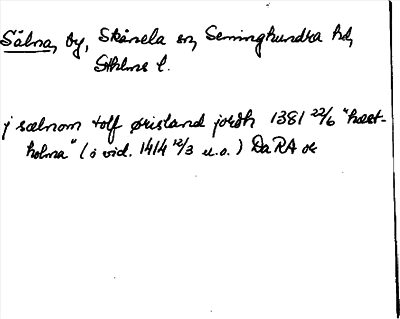 Sälna, by, Skånela sn, Seminghundra hd,
Sthlms l.
j sælnom tolf ørisland jordh 1381 22/6 "hæst-
holma" (i vid. 1414 12/3 u.o.) DaRA or